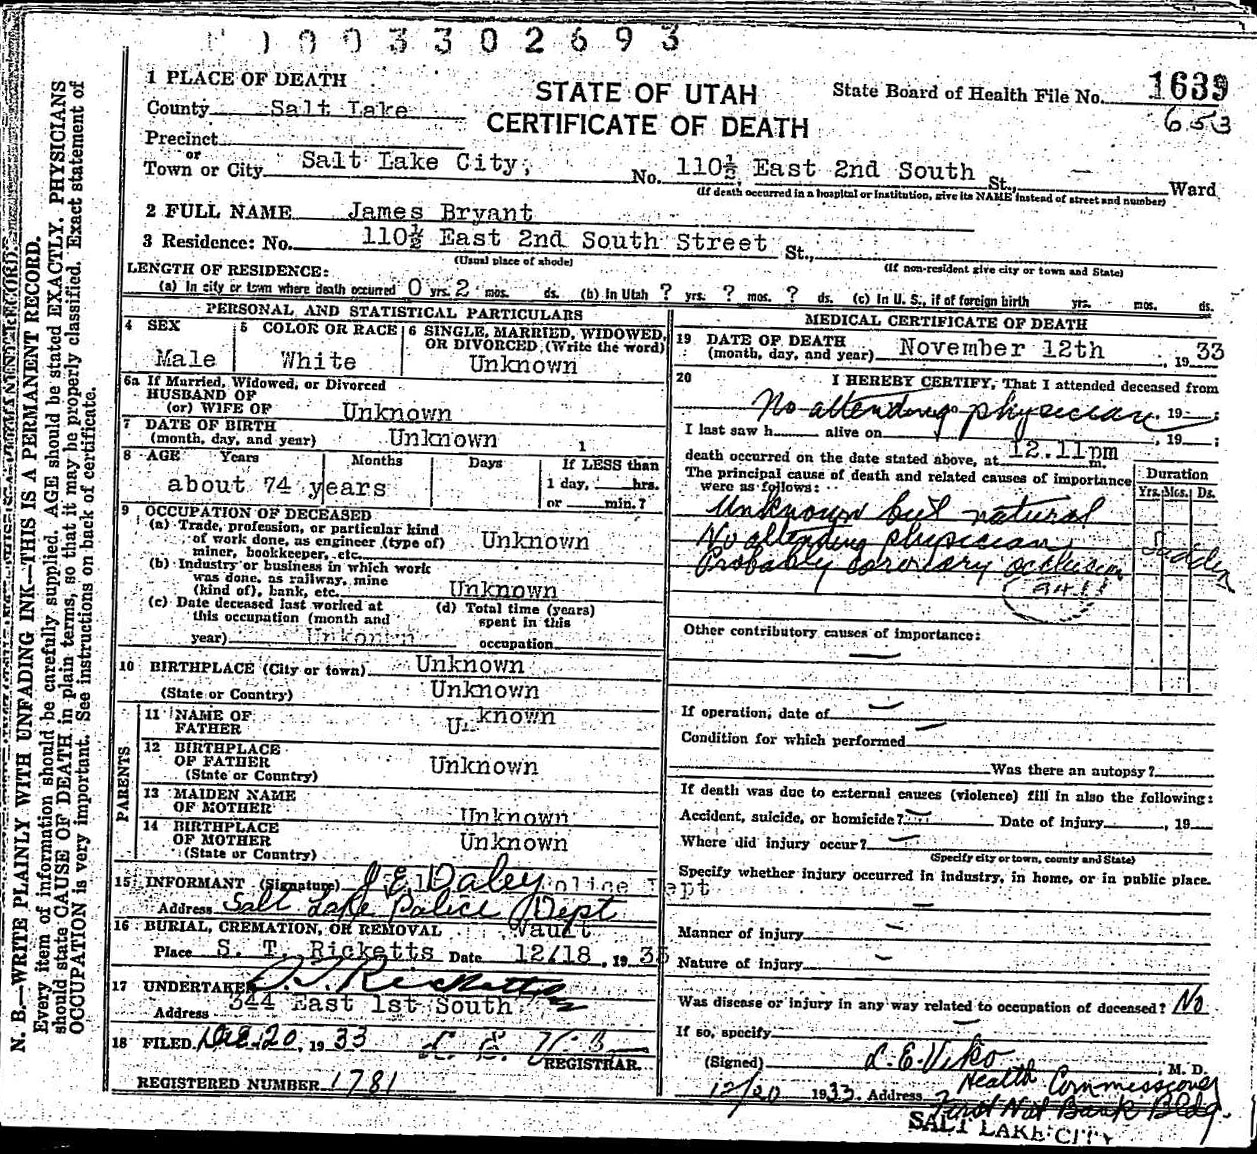 0 0 3 3 0 2 6 9 3
1 PLACE OF DEATH
STATE OF UTAH
CERTIFICATE OF DEATH
State Board of Health File No. 1639
653
County Salt Lake
Precinct
or
Town or City Salt Lake City, No. 110½ East 2nd South St., — Ward
(If death occurred in a hospital or institution, give its NAME instead of street and number)
2 FULL NAME James Bryant
3 Residence: No. 110½ East 2nd South Street St.,
(Usual place of abode) (If non-resident give city or town and State)
LENGTH OF RESIDENCE:
(a) In city or town where death occurred 0 yrs. 2 mos. ds. (b) In Utah ? yrs. ? mos. ? ds. (c) In U. S., if of foreign birth yrs. mos. ds.
PERSONAL AND STATISTICAL PARTICULARS
4 SEX
Male
5 COLOR OR RACE
White
6 SINGLE, MARRIED, WIDOWED,
OR DIVORCED (Write the word)
Unknown
6a If Married, Widowed, or Divorced
HUSBAND OF
(or) WIFE OF Unknown
7 DATE OF BIRTH
(month, day, and year) Unknown 1
8 AGE Years Months Days If LESS than
about 74 years 1 day, hrs.
or min.?
9 OCCUPATION OF DECEASED
(a) Trade, profession, or particular kind
of work done, as engineer (type of)
miner, bookkeeper, etc. Unknown
(b) Industry or business in which work
was done, as railway, mine
(kind of), bank, etc. Unknown
(c) Date deceased last worked at
this occupation (month and
year) Unkonwn
(d) Total time (years)
spent in this
occupation
10 BIRTHPLACE (City or town) Unknown
(State or Country) Unknown
PARENTS
11 NAME OF
FATHER Unknown
12 BIRTHPLACE
OF FATHER
(State or Country) Unknown
13 MAIDEN NAME
OF MOTHER Unknown
14 BIRTHPLACE
OF MOTHER
(State or Country) Unknown
15 INFORMANT (Signature) J. E. Daley olice Dept
Address Salt Lake Police Dept
16 BURIAL, CREMATION, OR REMOVAL Vault
Place S. T. Ricketts Date 12/18, 1933
17 UNDERTAKER S. T. Ricketts
Address 344 East 1st South
18 FILED Dec. 20, 1933
REGISTRAR.
REGISTERED NUMBER 1781
MEDICAL CERTIFICATE OF DEATH
19 DATE OF DEATH
(month, day, and year) November 12th, 1933
20 I HEREBY CERTIFY, That I attended deceased from
No attending physician, 19 ;
I last saw h alive on , 19 ;
death occurred on the date stated above, at 12.11pm m.
The principal cause of death and related causes of importance
were as follows:
Duration
Yrs. Mos. Ds.
Unknown but natural
No attending physician
Probably coronary occlusion
Sudden
94
Other contributory causes of importance:
If operation, date of
Condition for which performed
Was there an autopsy?
If death was due to external causes (violence) fill in also the following:
Accident, suicide, or homicide? Date of injury , 19
Where did injury occur?
(Specify city or town, county and State)
Specify whether injury occurred in industry, in home, or in public place.
Manner of injury
Nature of injury
Was disease or injury in any way related to occupation of deceased? No
If so, specify
(Signed) L. E. Viko, M. D.
12/20 1933. Address Health Commissioner
First Nat Bank Bldg.
SALT LAKE CITY
N. B.—WRITE PLAINLY WITH UNFADING INK—THIS IS A PERMANENT RECORD.
Every item of information should be carefully supplied. AGE should be stated EXACTLY. PHYSICIANS
should state CAUSE OF DEATH in plain terms, so that it may be properly classified. Exact statement of
OCCUPATION is very important. See instructions on back of certificate.